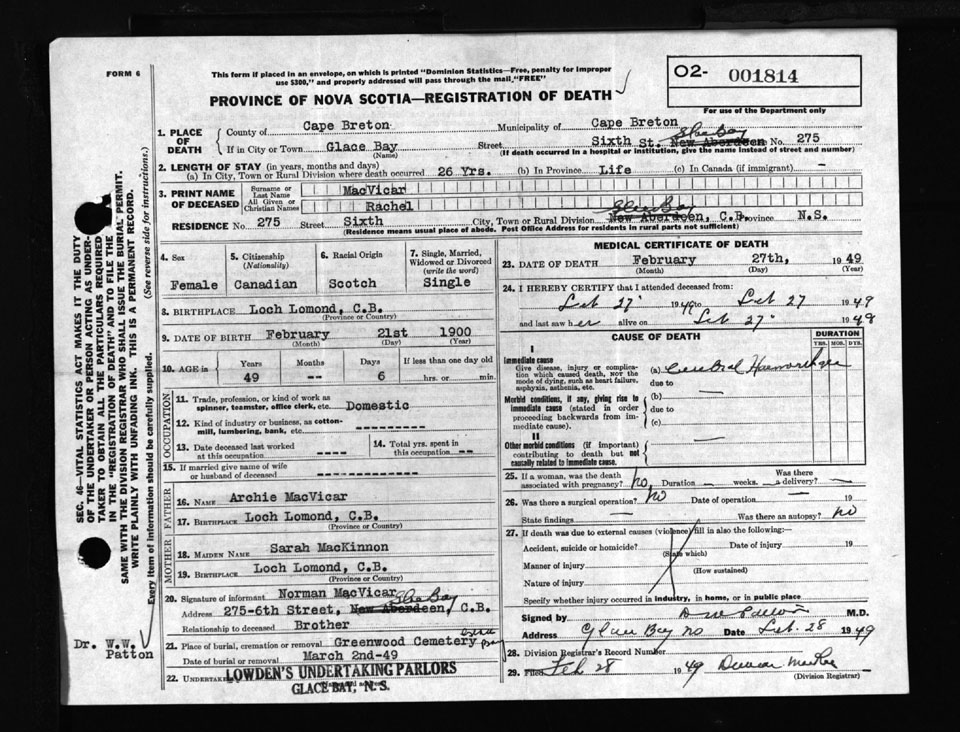 FORM 6
This form if placed in an envelope, on which is printed "Dominion Statistics—Free, penalty for improper
use $300," and properly addressed will pass through the mail, "FREE"
O2- 001814
PROVINCE OF NOVA SCOTIA—REGISTRATION OF DEATH
For use of the Department only
1. PLACE OF DEATH
County of Cape Breton Municipality of Cape Breton
If in City or Town Glace Bay (Name) Street Sixth St. New Aberdeen Glace Bay No. 275
(If death occurred in a hospital or institution, give the name instead of street and number)
2. LENGTH OF STAY (in years, months and days)
(a) In City, Town or Rural Division where death occurred 26 Yrs. (b) In Province Life (c) In Canada (if immigrant) —
3. PRINT NAME OF DECEASED
Surname or Last Name MacVicar
All Given or Christian Names Rachel
RESIDENCE No. 275 Street Sixth City, Town or Rural Division New Aberdeen, C.B. Glace Bay Province N.S.
(Residence means usual place of abode. Post Office Address for residents in rural parts not sufficient)
4. Sex Female
5. Citizenship (Nationality) Canadian
6. Racial Origin Scotch
7. Single, Married, Widowed or Divorced (write the word) Single
8. BIRTHPLACE Loch Lomond, C.B.
(Province or Country)
9. DATE OF BIRTH February 21st 1900
(Month) (Day) (Year)
10. AGE in Years Months Days If less than one day old
49 -- 6 hrs. or min.
OCCUPATION
11. Trade, profession, or kind of work as spinner, teamster, office clerk, etc. Domestic
12. Kind of industry or business, as cotton-mill, lumbering, bank, etc. ----------
13. Date deceased last worked at this occupation ----
14. Total yrs. spent in this occupation --
15. If married give name of wife or husband of deceased ----------
FATHER
16. NAME Archie MacVicar
17. BIRTHPLACE Loch Lomond, C.B.
(Province or Country)
MOTHER
18. MAIDEN NAME Sarah MacKinnon
19. BIRTHPLACE Loch Lomond, C.B.
(Province or Country)
20. Signature of informant Norman MacVicar
Address 275-6th Street, New Aberdeen, Glace Bay C.B.
Relationship to deceased Brother
21. Place of burial, cremation or removal Greenwood Cemetery
Date of burial or removal March 2nd-49
22. UNDERTAKER LOWDEN'S UNDERTAKING PARLORS
GLACE BAY, N. S.
MEDICAL CERTIFICATE OF DEATH
23. DATE OF DEATH February 27th, 1949
(Month) (Day) (Year)
24. I HEREBY CERTIFY that I attended deceased from:
Feb 27 1949 to Feb 27 1949
and last saw her alive on Feb 27 1949
CAUSE OF DEATH
DURATION
YRS. MOS. DYS.
I
Immediate cause
Give disease, injury or complication which caused death, NOT the mode of dying, such as heart failure, asphyxia, asthenia, etc.
(a) Cerebral Haemorrhage
due to
Morbid conditions, if any, giving rise to immediate cause (stated in order proceeding backwards from immediate cause).
(b)
due to
(c)
II
Other morbid conditions (if important) contributing to death but not causally related to immediate cause.
25. If a woman, was the death associated with pregnancy? no Duration — weeks. Was there a delivery? —
26. Was there a surgical operation? no Date of operation — 19
State findings — Was there an autopsy? no
27. If death was due to external causes (violence) fill in also the following:—
Accident, suicide or homicide? (State which) Date of injury 19
Manner of injury (How sustained)
Nature of injury
Specify whether injury occurred in industry, in home, or in public place
Signed by M.D.
Address Glace Bay NS Date Feb. 28 1949
28. Division Registrar's Record Number
29. Filed Feb 28 1949
(Division Registrar)
SEC. 46—VITAL STATISTICS ACT MAKES IT THE DUTY
OF THE UNDERTAKER OR PERSON ACTING AS UNDER-
TAKER TO OBTAIN ALL THE PARTICULARS REQUIRED
IN THE "REGISTRATION OF DEATH" AND TO FILE THE
SAME WITH THE DIVISION REGISTRAR WHO SHALL ISSUE THE BURIAL PERMIT.
WRITE PLAINLY WITH UNFADING INK. THIS IS A PERMANENT RECORD.
Every item of Information should be carefully supplied. (See reverse side for instructions.)
Dr. W.W. Patton